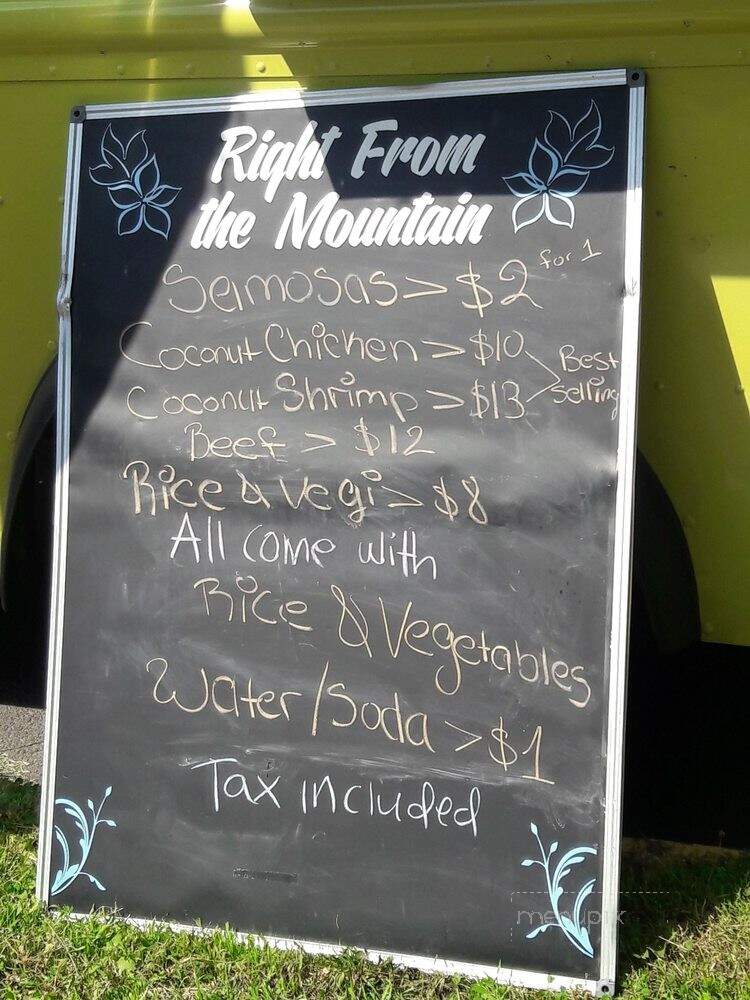 Right From
the Mountain
Samosas > $2 for 1
Coconut Chicken > $10
Coconut Shrimp > $13
Best
selling
Beef > $12
Rice & Vegi > $8
All come with
Rice & Vegetables
Water/Soda > $1
Tax included
menupix